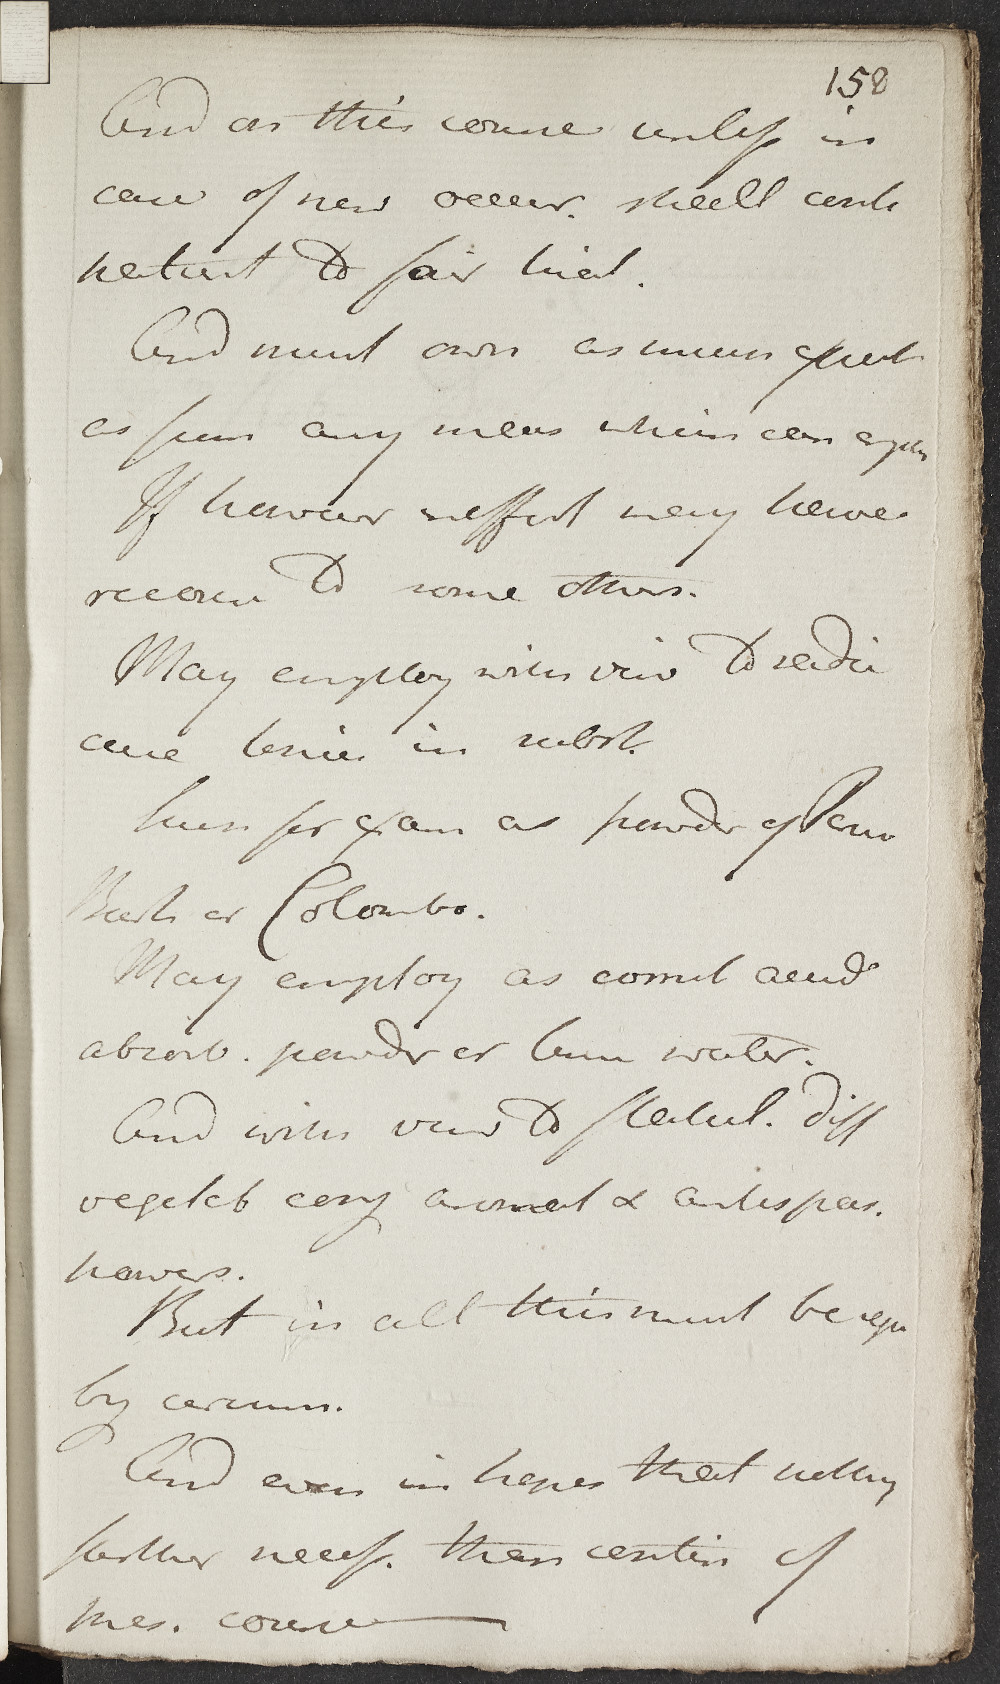 158
And on this course unless in
case of new occur. shall
patient to fair trial.
And must own as much
as from any means which can
If however ineffect may have
recourse to some others.
May employ with view to radic
cure tonics in subst.
Such for exam as powder of Peruv
Bark or Colombo.
May employ as correct acid
absorb. powder or lime water.
And with view to flatul. diff
vegetab cong aromat & antispas.
powers.
But in all this must be
by circum.
And even in hopes that nothing
farther necess. than contin of
pres. course